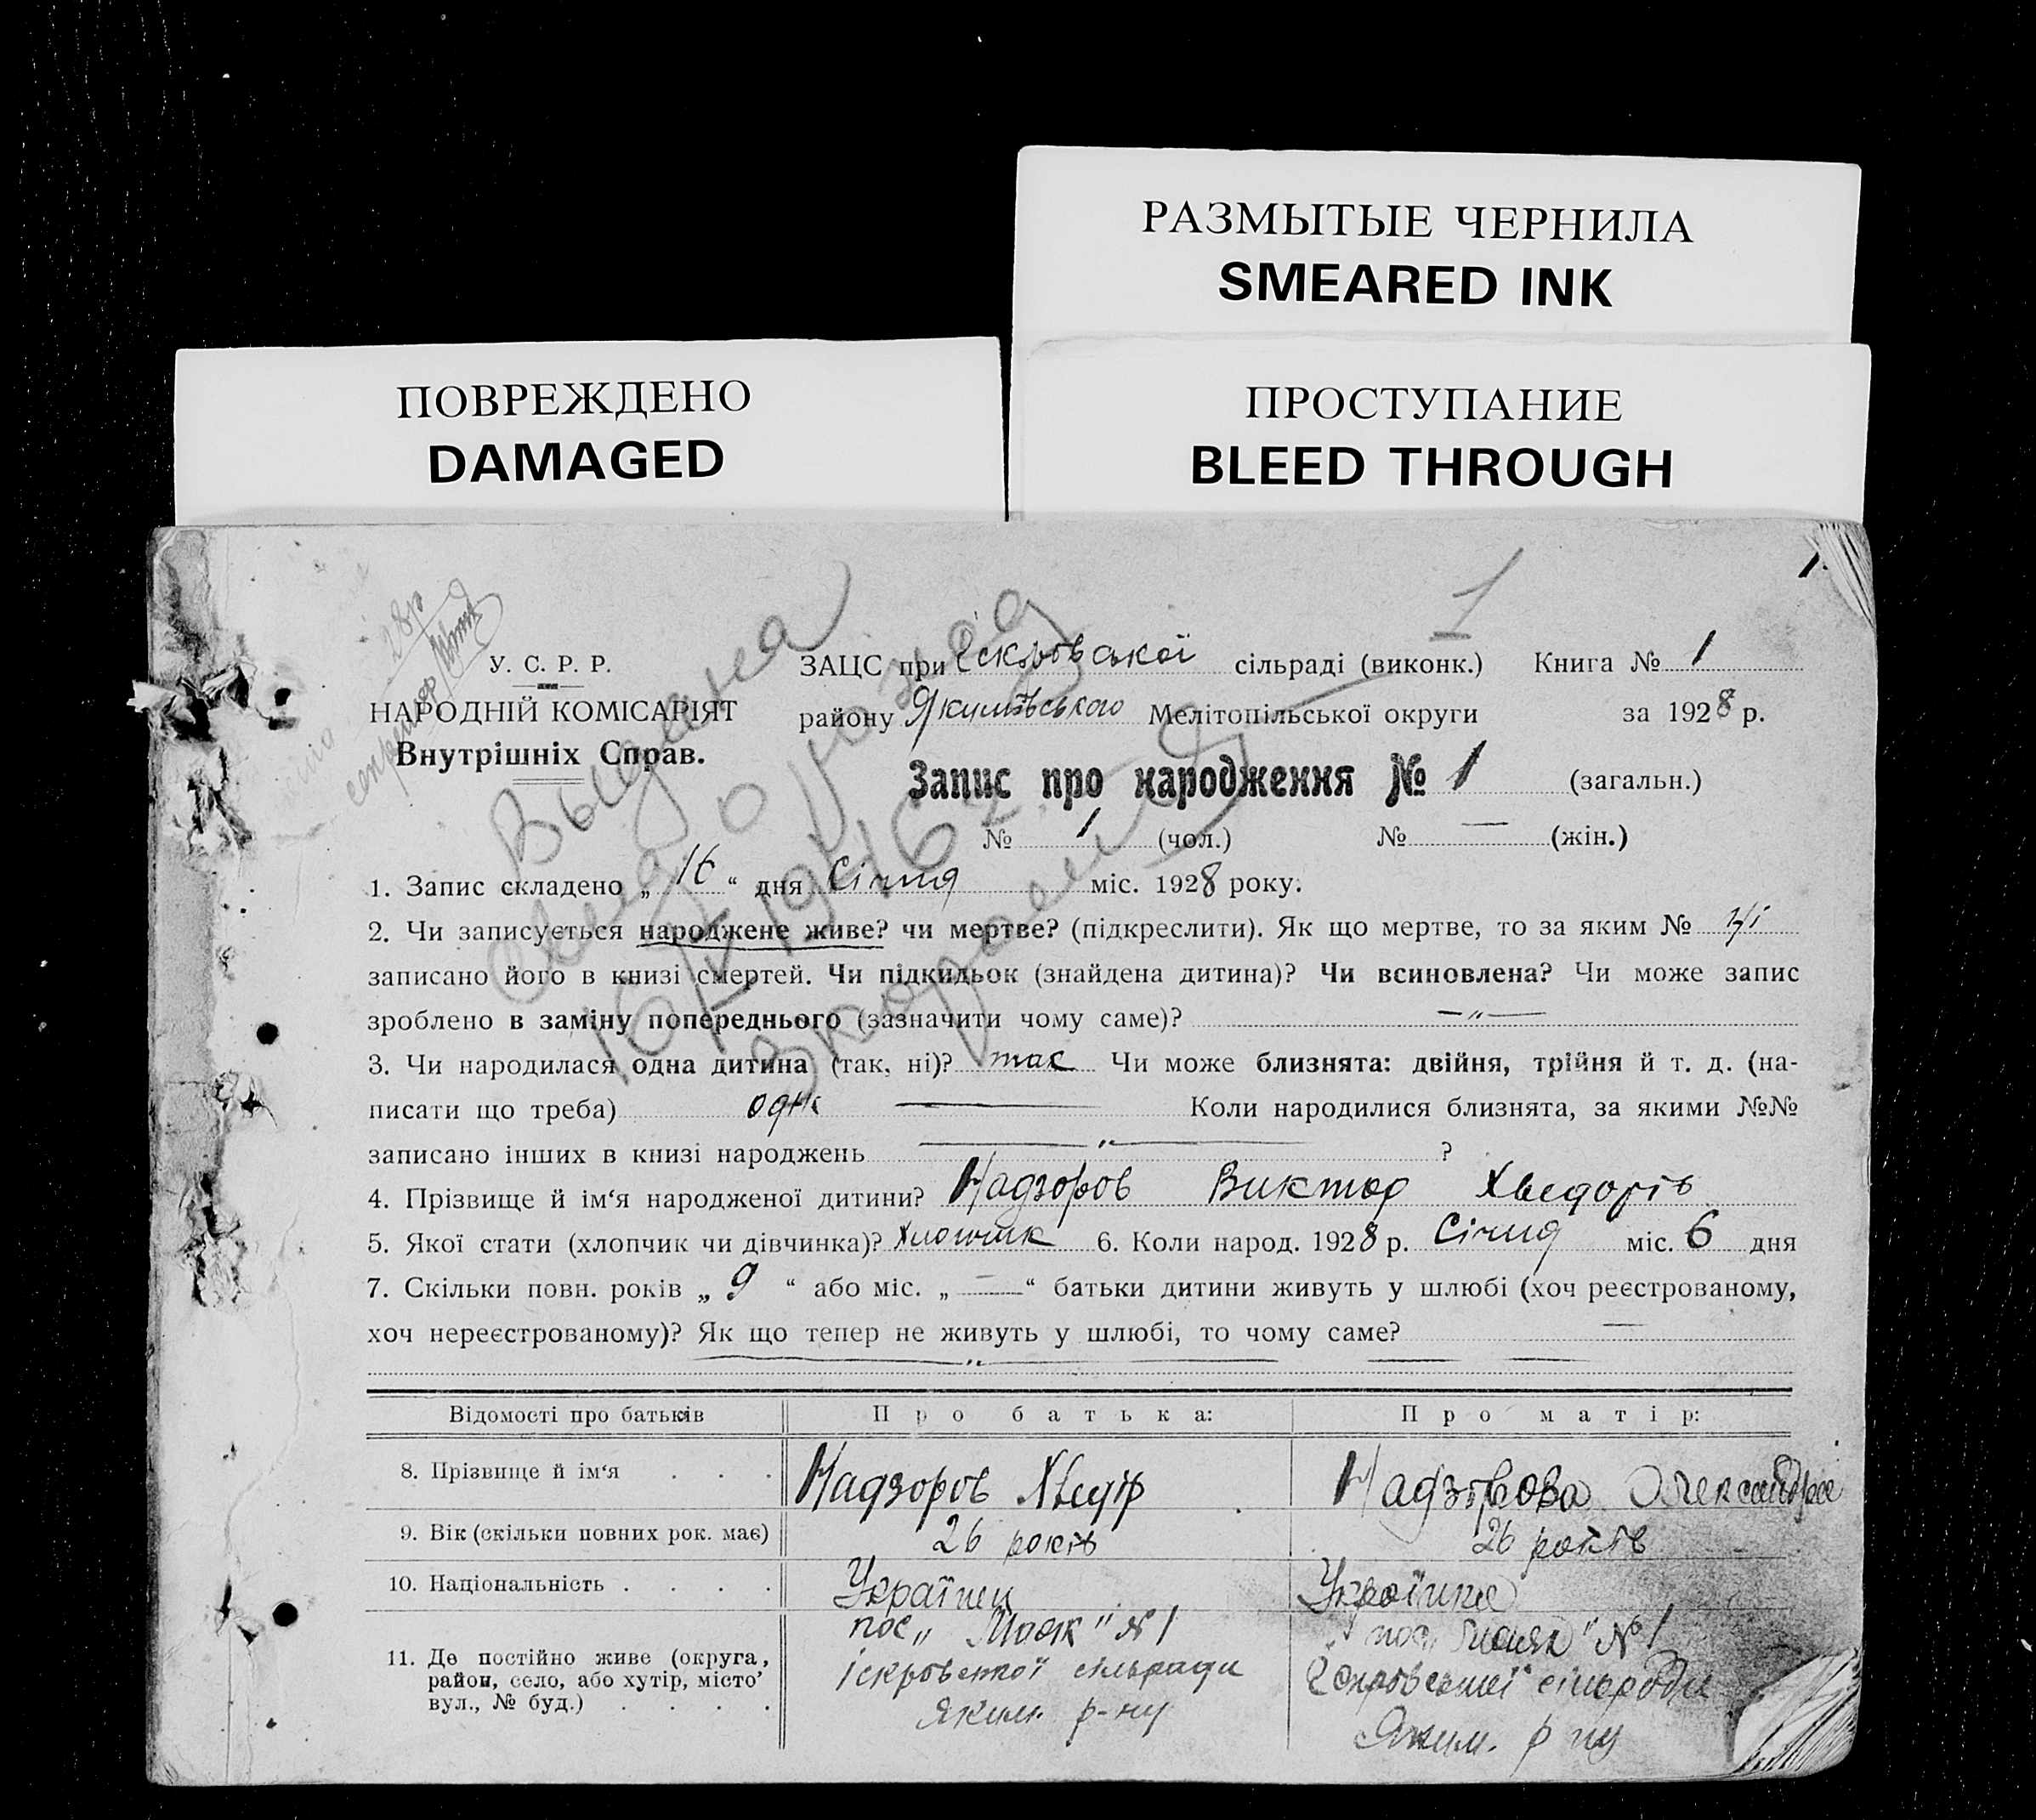 РАЗМЫТЫЕ ЧЕРНИЛА
SMEARED INK
ПОВРЕЖДЕНО
DAMAGED
ПРОСТУПАНИЕ
BLEED THROUGH
1
28р
У. С. Р. Р.
НАРОДНІЙ КОМІСАРІЯТ
Внутрішніх Справ.
Выдана
16/IV 1946 г.
1
ЗАЦС при Іскровської сільраді (виконк.) Книга № 1
району Якимівського Мелітопільської округи за 1928 р.
Запис про народження № 1 (загальн.)
№ 1 (чол.) № — (жін.)
1. Запис складено „ 16 “ дня Січня міс. 1928 року.
2. Чи записується народжене живе? чи мертве? (підкреслити). Як що мертве, то за яким № ні
записано його в книзі смертей. Чи підкидьок (знайдена дитина)? Чи всиновлена? Чи може запис
зроблено в заміну попереднього (зазначити чому саме)? —„—
3. Чи народилася одна дитина (так, ні)? так Чи може близнята: двійня, трійня й т. д. (на-
писати що треба) одне — Коли народилися близнята, за якими №№
записано інших в книзі народжень —„— ?
4. Прізвище й ім‘я народженої дитини? Надзоров Виктор Хведорів
5. Якої стати (хлопчик чи дівчинка)? Хлопчик 6. Коли народ. 1928 р. Січня міс. 6 дня
7. Скільки повн. років „ 9 “ або міс. „ — “ батьки дитини живуть у шлюбі (хоч реєстрованому,
хоч нереєстрованому)? Як що тепер не живуть у шлюбі, то чому саме? —
—„—
Відомості про батьків Про батька: Про матір:
8. Прізвище й ім‘я . . . Надзоров Хведір Надзорова Олександра
9. Вік (скільки повних рок. має) 26 років 26 років
10. Національність . . . . Українец Українка
11. Де постійно живе (округа, район, село, або хутір, місто’ вул., № буд.) . . . .
пос „Маяк“ № 1
Іскровської сільради
Яким. р-ну
пос „Маяк“ № 1
Іскровської сільради
Яким. р ну